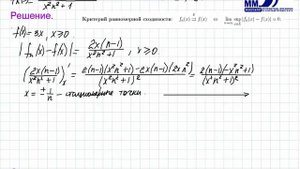 x²n²+1
ММ
Решение.
Критерий равномерной сходимости: fₙ(x) ⇉ f(x) ⇔ lim sup |fₙ(x) − f(x)| = 0.
f(x) = 3x, x ≥ 0
|fₙ(x) − f(x)| = 2x(n−1)/(x²n²+1), x ≥ 0
(2x(n−1)/(x²n²+1))'ₓ = (2(n−1)(x²n²+1) − 2x(n−1)(2xn²))/(x²n²+1)² = 2(n−1)(−x²n²+1)/(x²n²+1)²
x = ± 1/n − стационарные точки.